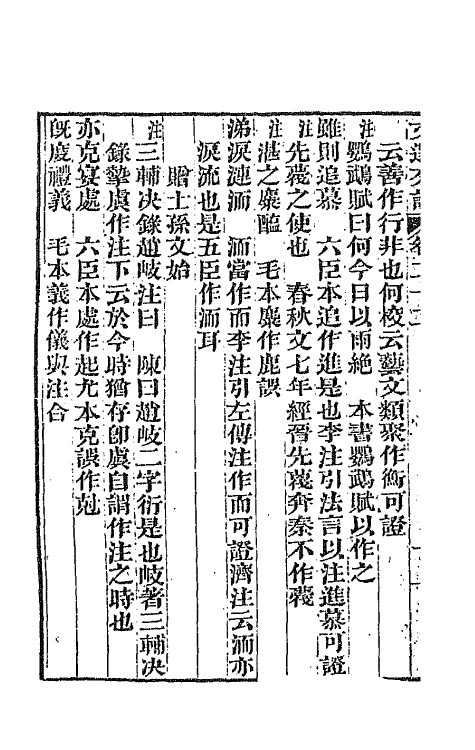 云善作行非也何校云藝文類聚作衡可證
注鸚鵡賦曰何今日以雨絶　本書鸚鵡賦以作之
雖則追慕　六臣本追作進是也李注引法言以注進慕可證
注先薎之使也　春秋文七年經晉先蔑奔秦不作薎
注湛之麋醢　毛本麋作鹿誤
涕淚漣洏　洏當作而李注引左傳注作而可證濟注云洏亦
淚流也是五臣作洏耳
贈士孫文始
注三輔決錄趙岐注曰　陳曰趙岐二字衍是也岐著三輔決
錄摯虞作注下云於今時猶存卽虞自謂作注之時也
亦克宴處　六臣本處作起尤本克誤作剋
旣度禮義　毛本義作儀與注合